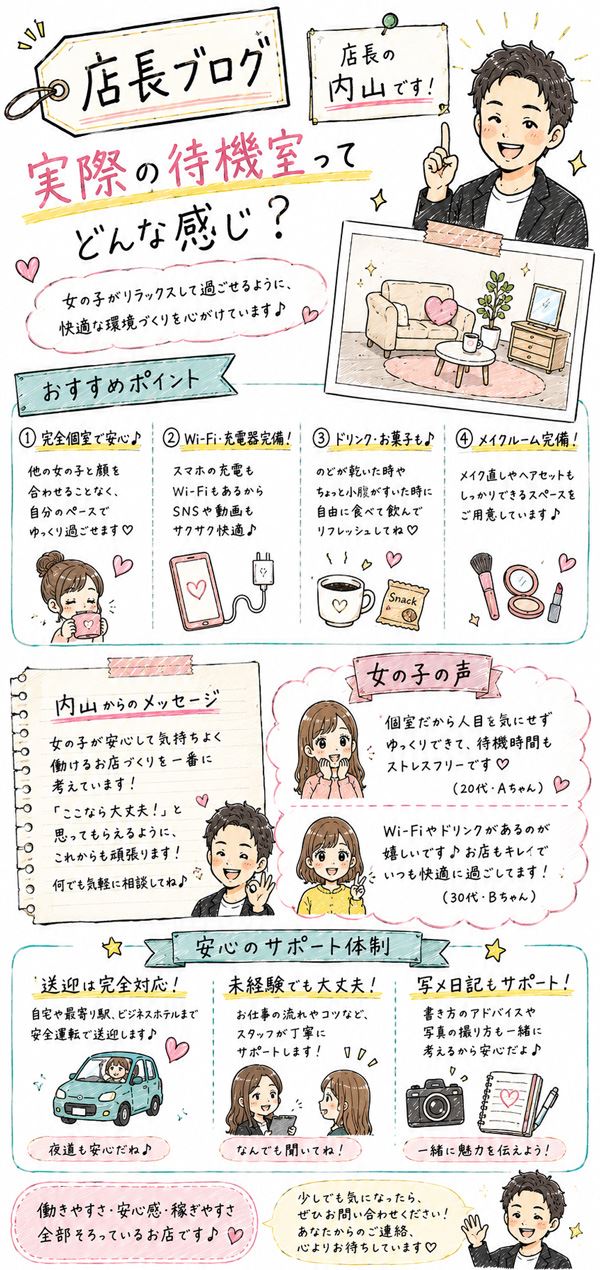 店長ブログ
店長の
内山です!
実際の待機室って
どんな感じ?
女の子がリラックスして過ごせるように、
快適な環境づくりを心がけています♪
おすすめポイント
① 完全個室で安心♪
他の女の子と顔を
合わせることなく、
自分のペースで
ゆっくり過ごせます♡
② Wi-Fi・充電器完備!
スマホの充電も
Wi-Fiもあるから
SNSや動画も
サクサク快適♪
③ ドリンク・お菓子も♪
のどが乾いた時や
ちょっと小腹がすいた時に
自由に食べて飲んで
リフレッシュしてね♡
Snack
④ メイクルーム完備!
メイク直しやヘアセットも
しっかりできるスペースを
ご用意しています♪
内山からのメッセージ
女の子が安心して気持ちよく
働けるお店づくりを一番に
考えています!
「ここなら大丈夫!」と
思ってもらえるように、
これからも頑張ります!
何でも気軽に相談してね♪
女の子の声
個室だから人目を気にせず
ゆっくりできて、待機時間も
ストレスフリーです♡
(20代・Aちゃん)
Wi-Fiやドリンクがあるのが
嬉しいです♪お店もキレイで
いつも快適に過ごしてます!
(30代・Bちゃん)
安心のサポート体制
送迎は完全対応!
自宅や最寄り駅、ビジネスホテルまで
安全運転で送迎します♪
夜道も安心だね♪
未経験でも大丈夫!
お仕事の流れやコツなど、
スタッフが丁寧に
サポートします!
なんでも聞いてね!
写メ日記もサポート!
書き方のアドバイスや
写真の撮り方も一緒に
考えるから安心だよ♪
一緒に魅力を伝えよう!
働きやすさ・安心感・稼ぎやすさ
全部そろっているお店です♪
少しでも気になったら、
ぜひお問い合わせください!
あなたからのご連絡、
心よりお待ちしています♡